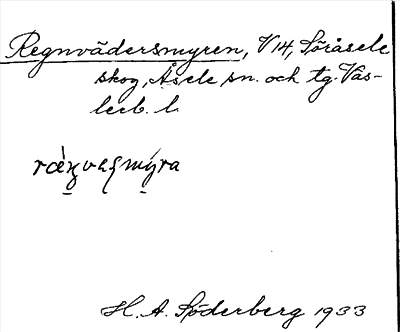 Regnvädersmyren, V 14, Söråsele
skog, Åsele sn. och tg. Väs-
terb. l.
H. A. Söderberg 1933